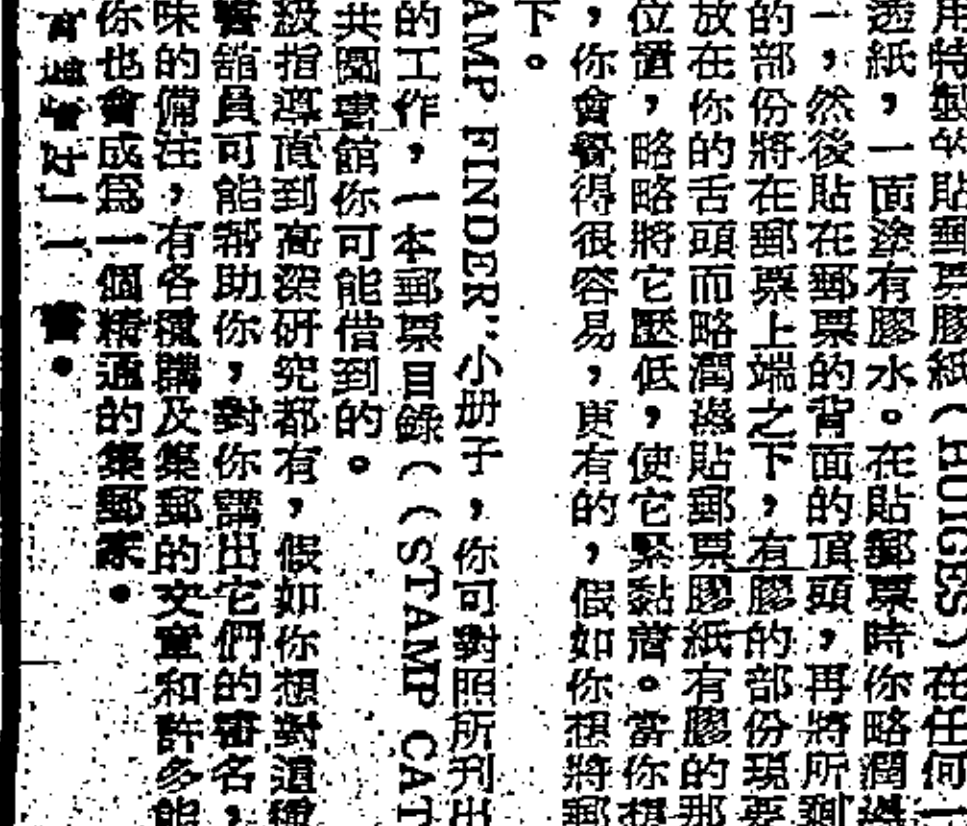 用特製的貼郵票膠紙(HUIGES)在任何一
透紙，一面塗有膠水。在貼郵票時你略潤濕
一，然後貼在郵票的背面的頂頭，再將所剩
的部份將在郵票上端之下，有膠的部份現要
放在你的舌頭而略潤濕貼郵票膠紙有膠的那
位置，略略將它壓低，使它緊黏着。當你想
，你會覺得很容易，更有的，假如你想將郵
下。
AMP FINDER"小册子，你可對照所刊出
的工作，一本郵票目錄((STAMP CAT
共圖書館你可能借到的。
級指導直到高深研究都有，假如你想對這種
書館員可能帮助你，對你講出它們的書名，
味的備注，有各種購及集郵的文章和許多能
你也會成爲一個精通的集郵家。